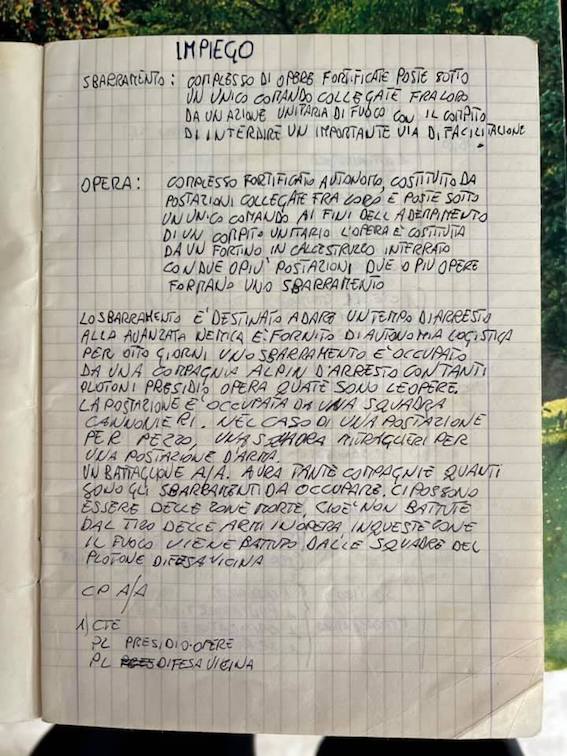 IMPIEGO
SBARRAMENTO: COMPLESSO DI OPERE FORTIFICATE POSTE SOTTO
UN UNICO COMANDO COLLEGATE FRA LORO
DA UN AZIONE UNITARIA DI FUOCO CON IL COMPITO
DI INTERDIRE UN IMPORTANTE VIA DI FACILITAZIONE
OPERA: COMPLESSO FORTIFICATO AUTONOMO, COSTITUITO DA
POSTAZIONI COLLEGATE FRA LORO E POSTE SOTTO
UN UNICO COMANDO AI FINI DELL ADEMPIMENTO
DI UN COMPITO UNITARIO L'OPERA E' COSTITUITA
DA UN FORTINO IN CALCESTRUZZO INTERRATO
CON DUE O PIU' POSTAZIONI DUE O PIU OPERE
FORMANO UNO SBARRAMENTO
LO SBARRAMENTO E' DESTINATO A DARE UN TEMPO DI ARRESTO
ALLA AVANZATA NEMICA E' FORNITO DI AUTONOMIA LOGISTICA
PER OTTO GIORNI UNO SBARRAMENTO E' OCCUPATO
DA UNA COMPAGNIA ALPIN D'ARRESTO CON TANTI
PLOTONI PRESIDIO OPERA QUATE SONO LE OPERE.
LA POSTAZIONE E' OCCUPATA DA UNA SQUADRA
CANNONIERI. NEL CASO DI UNA POSTAZIONE
PER PEZZO, UNA SQUADRA MITRAGLIERI PER
UNA POSTAZIONE D'ARMA
UN BATTAGLIONE A/A. AVRA TANTE COMPAGNIE QUANTI
SONO GLI SBARRAMENTI DA OCCUPARE. CI POSSONO
ESSERE DELLE ZONE MORTE, CIOE' NON BATTUTE
DAL TIRO DELLE ARMI IN OPERA IN QUESTE ZONE
IL FUOCO VIENE BATTUTO DALLE SQUADRE DEL
PLOTONE DIFESA VICINA
CP A/A
1) CTE
PL PRESIDIO-OPERE
PL DIFESA VICINA